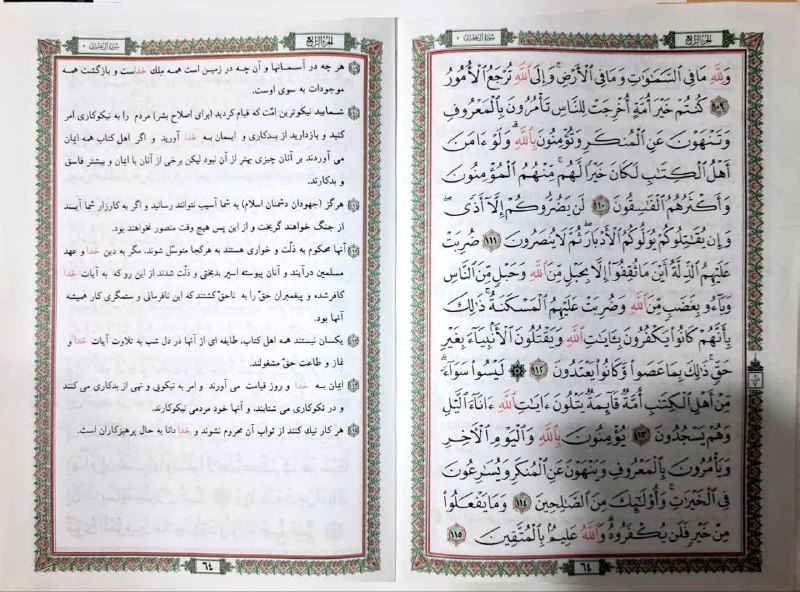 الجزء الرابع
سورة آل عمران ٣
وَلِلَّهِ مَا فِي السَّمَاوَاتِ وَمَا فِي الْأَرْضِ وَإِلَى اللَّهِ تُرْجَعُ الْأُمُورُ
١٠٩ كُنْتُمْ خَيْرَ أُمَّةٍ أُخْرِجَتْ لِلنَّاسِ تَأْمُرُونَ بِالْمَعْرُوفِ
وَتَنْهَوْنَ عَنِ الْمُنْكَرِ وَتُؤْمِنُونَ بِاللَّهِ وَلَوْ ءَامَنَ
أَهْلُ الْكِتَابِ لَكَانَ خَيْرًا لَهُمْ مِنْهُمُ الْمُؤْمِنُونَ
وَأَكْثَرُهُمُ الْفَاسِقُونَ ١١٠ لَنْ يَضُرُّوكُمْ إِلَّا أَذًى
وَإِنْ يُقَاتِلُوكُمْ يُوَلُّوكُمُ الْأَدْبَارَ ثُمَّ لَا يُنْصَرُونَ ١١١ ضُرِبَتْ
عَلَيْهِمُ الذِّلَّةُ أَيْنَ مَا ثُقِفُوا إِلَّا بِحَبْلٍ مِنَ اللَّهِ وَحَبْلٍ مِنَ النَّاسِ
وَبَاءُو بِغَضَبٍ مِنَ اللَّهِ وَضُرِبَتْ عَلَيْهِمُ الْمَسْكَنَةُ ذَٰلِكَ
بِأَنَّهُمْ كَانُوا يَكْفُرُونَ بِـَٔايَاتِ اللَّهِ وَيَقْتُلُونَ الْأَنْبِيَاءَ بِغَيْرِ
حَقٍّ ذَٰلِكَ بِمَا عَصَوْا وَكَانُوا يَعْتَدُونَ ١١٢ لَيْسُوا سَوَاءً
مِنْ أَهْلِ الْكِتَابِ أُمَّةٌ قَائِمَةٌ يَتْلُونَ ءَايَاتِ اللَّهِ ءَانَاءَ اللَّيْلِ
وَهُمْ يَسْجُدُونَ ١١٣ يُؤْمِنُونَ بِاللَّهِ وَالْيَوْمِ الْآخِرِ
وَيَأْمُرُونَ بِالْمَعْرُوفِ وَيَنْهَوْنَ عَنِ الْمُنْكَرِ وَيُسَارِعُونَ
فِي الْخَيْرَاتِ وَأُولَٰئِكَ مِنَ الصَّالِحِينَ ١١٤ وَمَا يَفْعَلُوا
مِنْ خَيْرٍ فَلَنْ يُكْفَرُوهُ وَاللَّهُ عَلِيمٌ بِالْمُتَّقِينَ ١١٥
٦٤
الجزء الرابع
سورة آل عمران ٣
هر چه در آسمانها و آن چه در زمین است همه مِلك خداست و بازگشت همه
موجودات به سوی اوست.
شمایید نیکوترین امّت که قیام کردید (برای اصلاح بشر) مردم را به نیکوکاری امر
کنید و بازدارید از بدکاری و ایمان به خدا آورید و اگر اهل کتاب همه ایمان
می آوردند بر آنان چیزی بهتر از آن نبود لیکن برخی از آنان با ایمان و بیشتر فاسق
و بدکارند.
هرگز (جهودان دشمنان اسلام) به شما آسیب نتوانند رسانید و اگر به کارزار شما آیند
از جنگ خواهند گریخت و از این پس هیچ وقت منصور نخواهند بود.
آنها محکوم به ذلّت و خواری هستند به هرکجا متوسّل شوند، مگر به دین خدا و عهد
مسلمین درآیند و آنان پیوسته اسیر بدبختی و ذلّت شدند از این رو که به آیات خدا
کافرشده و پیغمبران حقّ را به ناحق کشتند که این نافرمانی و ستمگری کار همیشه
آنها بود.
یکسان نیستند همه اهل کتاب، طایفه ای از آنها در دل شب به تلاوت آیات خدا و
نماز و طاعت حقّ مشغولند.
ایمان به خدا و روز قیامت می آورند و امر به نیکویی و نهی از بدکاری می کنند
و در نکوکاری می شتابند، و آنها خود مردمی نیکوکارند.
هر کار نیك کنند از ثواب آن محروم نشوند و خدا دانا به حال پرهیزکاران است.
٦٤